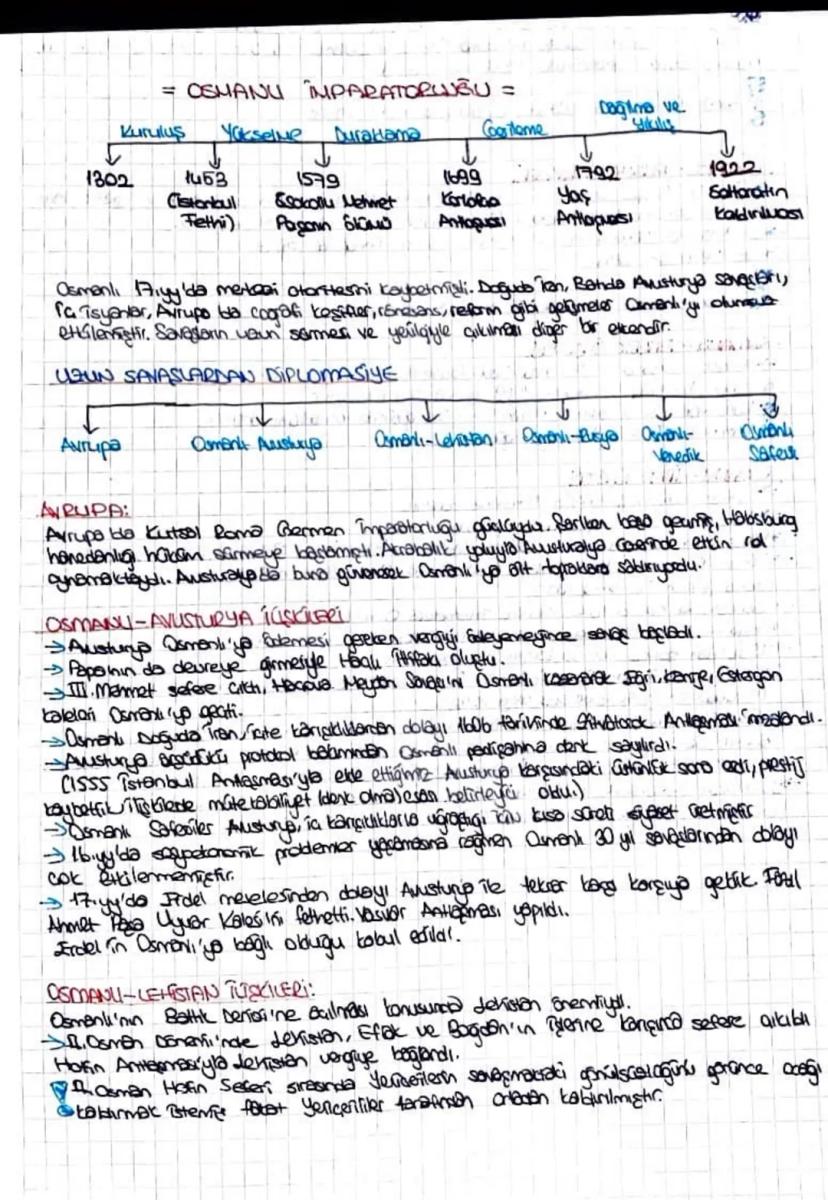 = OSMANLI İMPARATORLUĞU =
Kuruluş Yükselme Duraklama Gerileme Dağılma ve Yıkılış
1302 1453 1579 1699 1792 1922
(İstanbul Fethi) Sokollu Mehmet Paşanın Ölümü Karlofça Antlaşması Yaş Antlaşması Saltanatın kaldırılması
Osmanlı 17.yy'da merkezi otoritesini kaybetmişti. Doğuda İran, Batıda Avusturya savaşları,
iç isyanlar, Avrupa'da coğrafi keşifler, rönesans, reform gibi gelişmeler Osmanlı'yı olumsuz
etkilemiştir. Savaşların uzun sürmesi ve yenilgiyle çıkılması diğer bir etkendir.
UZUN SAVAŞLARDAN DİPLOMASİYE
Avrupa Osmanlı-Avusturya Osmanlı-Lehistan Osmanlı-Rusya Osmanlı-Venedik Osmanlı Safevi
AVRUPA:
Avrupa'da Kutsal Roma Germen İmparatorluğu güçlüydü. Şarlken başa geçmiş, Habsburg
hanedanlığı hüküm sürmeye başlamıştı. Akrabalık yoluyla Avusturalya üzerinde etkin rol
oynamaktaydı. Avusturalya'da buna güvenerek Osmanlı'ya ait topraklara saldırıyordu.
OSMANLI-AVUSTURYA İLİŞKİLERİ
→ Avusturya Osmanlı'ya ödemesi gereken vergiyi ödeyemeyince savaş başladı.
→ Papa'nın da devreye girmesiyle Haçlı İttifakı oluştu.
→ III. Mehmet sefere çıktı, Haçova Meydan Savaşı'nı Osmanlı kazanarak Eğri, Kanije, Estergon
kaleleri Osmanlı'ya geçti.
→ Osmanlı Doğuda İran, içte karışıklıklardan dolayı 1606 tarihinde Zitvatorok Antlaşması imzalandı.
→ Avusturya arşidükü protokol bakımından Osmanlı padişahına denk sayılırdı.
(1555 İstanbul Antlaşması'yla elde ettiğimiz Avusturya karşısındaki üstünlük sona erdi, prestij
kaybettik, ilişkilerde mütekabiliyet (denk olma) esası belirleyici oldu.)
→ Osmanlı Safeviler Avusturya, iç karışıklıklarla uğraştığı için kısa süreli siyaset üretmiştir
→ 16.yy'da sosyoekonomik problemler yaşamasına rağmen Osmanlı 30 yıl savaşlarından dolayı
çok etkilenmemiştir.
→ 17.yy'da Erdel meselesinden dolayı Avusturya ile tekrar karşı karşıya geldik. Fazıl
Ahmet Paşa Uyvar Kalesi'ni fethetti. Vasvar Antlaşması yapıldı.
Erdel'in Osmanlı'ya bağlı olduğu kabul edildi.
OSMANLI-LEHİSTAN İLİŞKİLERİ:
Osmanlı'nın Baltık Denizi'ne açılması konusunda Lehistan önemliydi.
→ II. Osman Dönemi'nde Lehistan, Eflak ve Boğdan'ın işlerine karışınca sefere çıkıldı
Hotin Antlaşması'yla Lehistan vergiye bağlandı.
II. Osman Hotin Seferi sırasında Yeniçerilerin savaşmaktaki gönülsüzlüğünü görünce ocağı
kaldırmak istemiş fakat Yeniçeriler tarafından ortadan kaldırılmıştır.